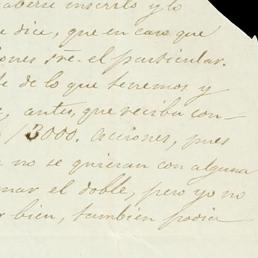 aberse inscrito y lo
e dice, que en caso que
iones sre. el particular.
te de lo que tenemos y
, antes, que reciba con-
13000. acciones, pues
a no se quieran con alguna
mar el doble, pero yo no
r bien, tambien podia